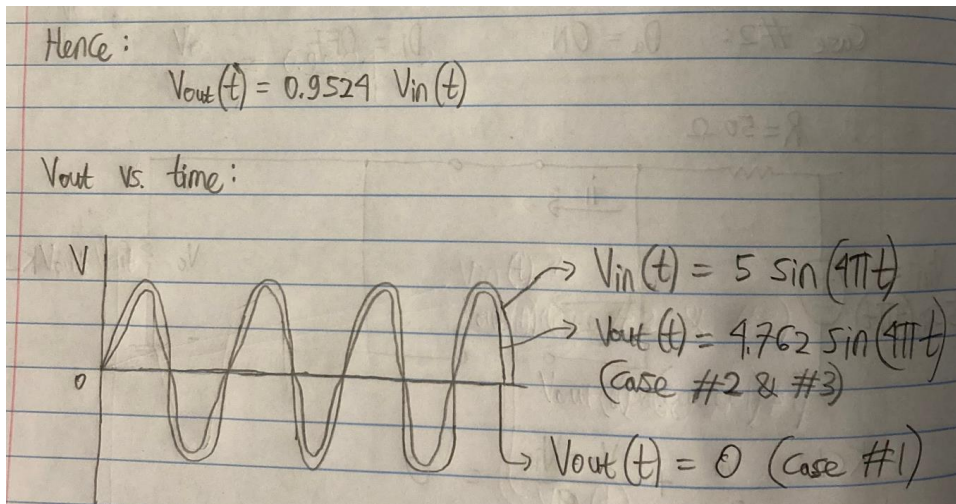 Hence:
Vout(t) = 0.9524 Vin(t)
Vout vs. time:
V
0
Vin(t) = 5 sin(4πt)
Vout(t) = 4.762 sin(4πt)
(Case #2 & #3)
Vout(t) = 0 (Case #1)